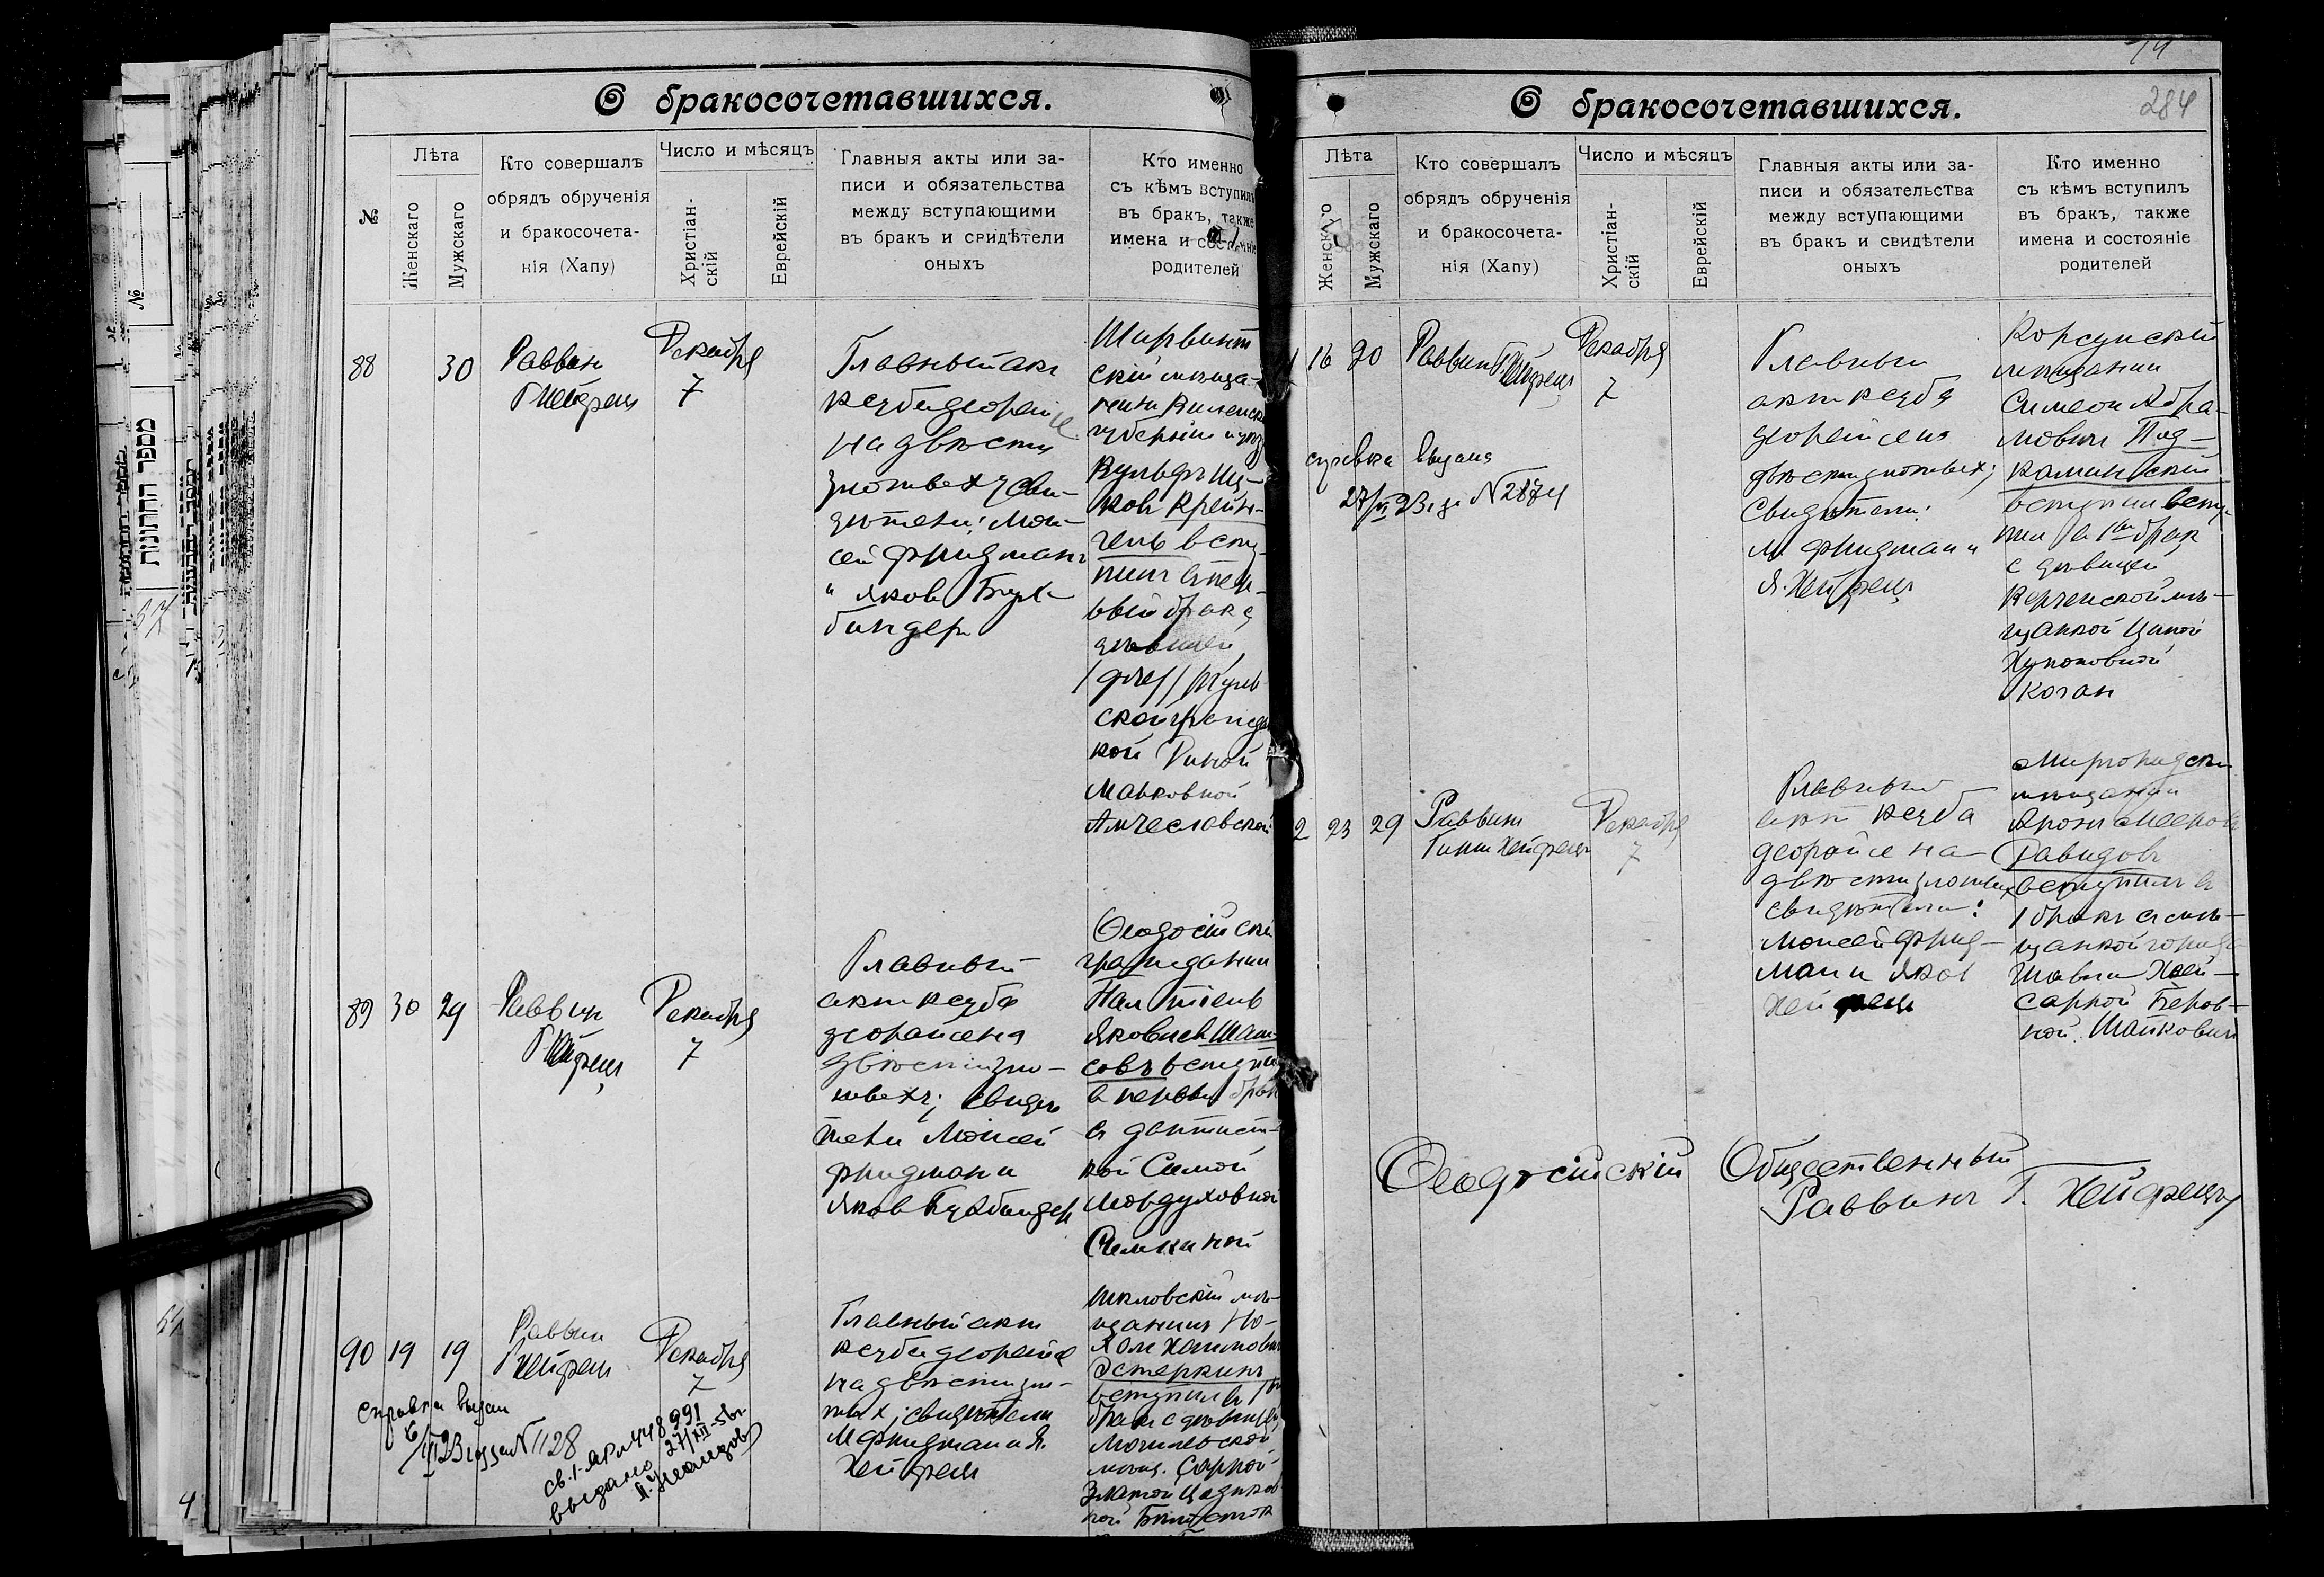 О бракосочетавшихся.
№
Лѣта
Женскаго
Мужскаго
Кто совершалъ
обрядъ обрученія
и бракосочета-
нія (Хапу)
Число и мѣсяцъ
Христіан-
скій
Еврейскій
Главныя акты или за-
писи и обязательства
между вступающими
въ бракъ и свидѣтели
оныхъ
Кто именно
съ кѣмъ вступилъ
въ бракъ, также
имена и состояніе
родителей
88
30
Раввин
Г Хейфец
Декабря
7
Главный акт
кесуба деорейсе
на двѣсти
злотых; сви-
дѣтели: Мои-
сей Фридман
и Яков Бух-
биндер
Ширвинт
скій мѣща-
нин Виленск
губерніи
Вульф Иц-
ков Крейн-
гель всту-
пил в пер-
вый брак с
дѣвицей
ской граждан
кой Диной
Марковной
Амчеславской
89
30
29
Раввин
Г. Хейфец
Декабря
7
Главный
акт кесуба
деорайсе на
двѣсти зло-
тых; свидѣ
тели Моисей
Фридман и
Яков Бухбиндер
Ѳеодосійскій
гражданин
Яковлев Шап-
совъ вступил
в первый брак
с дантист-
кой Симой
Мордуховной
Семкиной
90
19
19
Раввин
Г Хейфец
Декабря
7
Главный акт
кесуба деорейсе
на двѣсти зло-
тых; свидѣтели
М Фридман и Я.
Хейфец
Шкловскій мѣ-
щанин Но-
хом Хаимович
Эстеркинъ
вступил в 1й
брак с дѣвицей
Могилевской
мѣщ. Саррой-
Златой Цадиков
ной
справка выдан
6/II 23 года № 1128
св. 1-ЯР № 448991
выдано 27/XII-56г.
О бракосочетавшихся.
284
Лѣта
Женскаго
Мужскаго
Кто совершалъ
обрядъ обрученія
и бракосочета-
нія (Хапу)
Число и мѣсяцъ
Христіан-
скій
Еврейскій
Главныя акты или за-
писи и обязательства
между вступающими
въ бракъ и свидѣтели
оныхъ
Кто именно
съ кѣмъ вступилъ
въ бракъ, также
имена и состояніе
родителей
1
16
20
Раввин Г. Хейфец
Декабря
7
справка выдана
27/VI 23 г за № 2874
Главный
акт кесуба
деорейсе на
двѣсти злотых;
Свидѣтели:
М. Фридман и
Я. Хейфец
Корсунскій
мѣщанин
Симеон Абра-
мович Под-
каминскій
вступил всту-
пил в 1ый брак
с дѣвицей
Керченской мѣ-
щанкой Циной
Хуноновной
Коган
2
23
29
Раввин
Гирш Хейфецъ
Декабря
7
Главный
акт кесуба
деорайсе на
двѣсти злотых
свидѣтели:
Моисей Фрид-
ман и Яков
Хейфец
мѣщанин
Арон Мееров
Давидовъ
вступил в
1 бракъ с мѣ-
щанкой города
Шавли Хаей-
Саррой Беров-
ной Шайкович
Ѳеодосійскій Общественный
Раввинъ Г. Хейфецъ
מספר החתונות
№